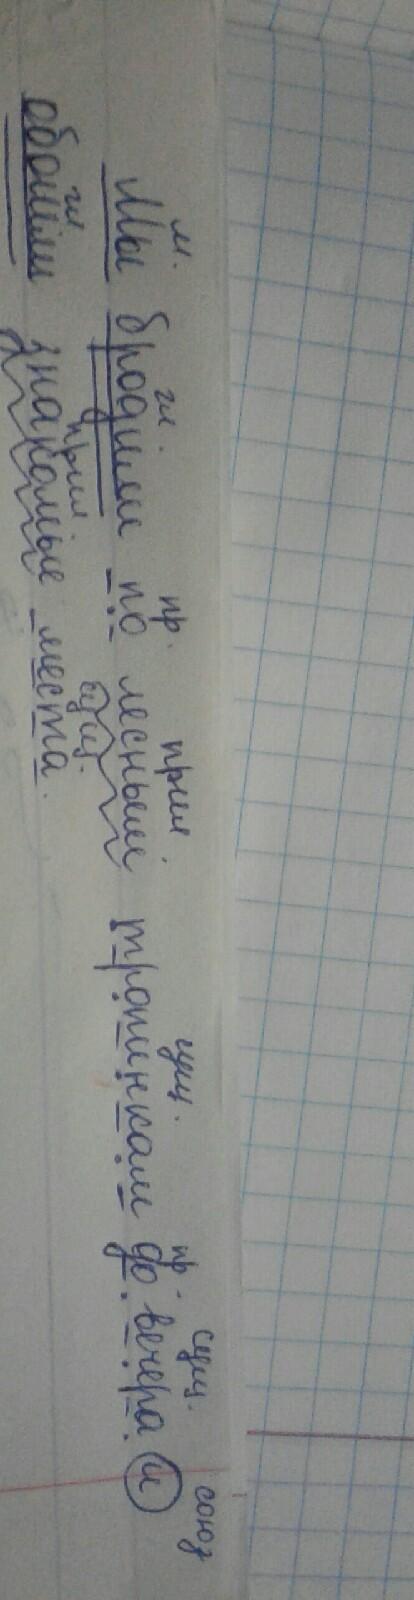 м. гл. пр. прил. сущ. пр. сущ. союз
Мы бродили по лесным тропинкам до вечера и
гл. прил сущ.
обошли знакомые места.